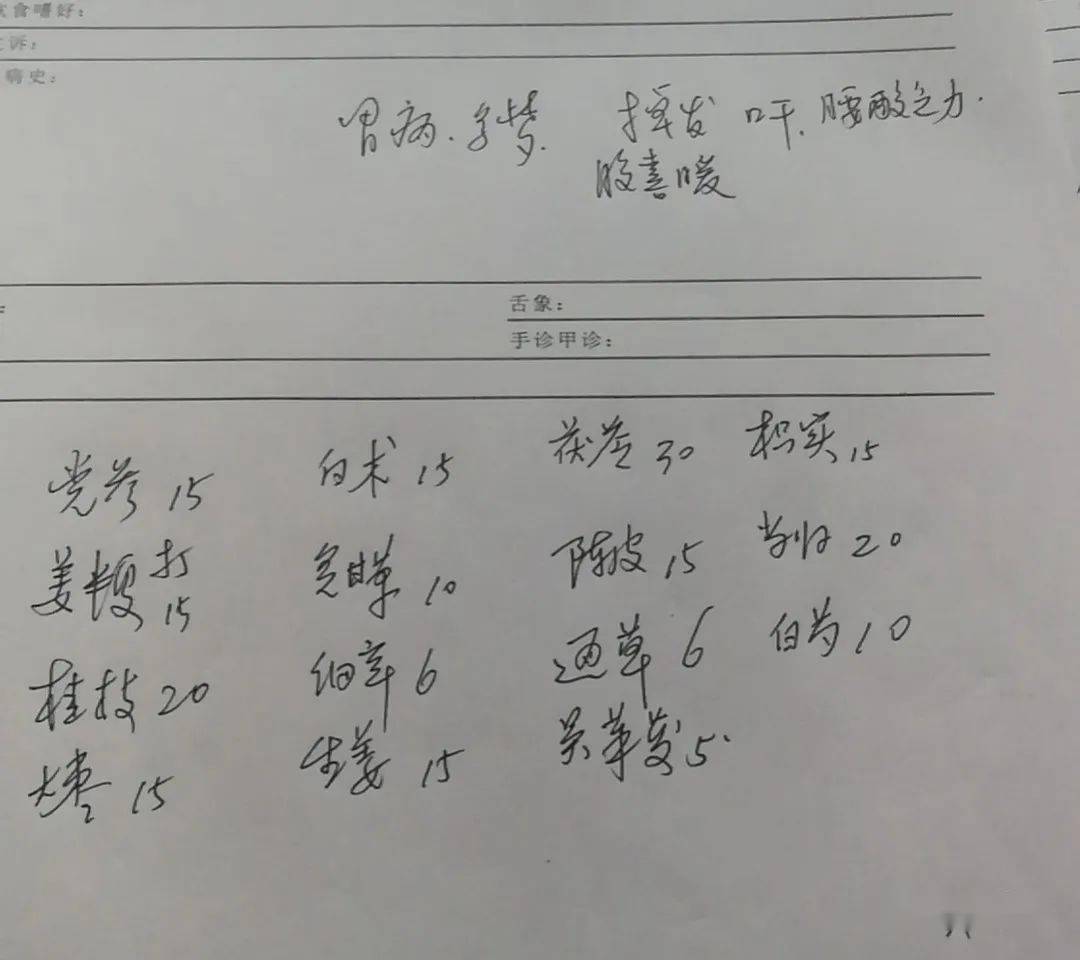 饮食嗜好：
主诉：
病史：
胃病．多梦． 掉发 口干．腰酸乏力．
腹喜暖
舌象：
手诊甲诊：
党参 15 白术 15 茯苓 30 枳实 15
姜半夏 打 15 炙甘草 10 陈皮 15 当归 20
桂枝 20 细辛 6 通草 6 白芍 10
大枣 15 生姜 15 吴茱萸 5